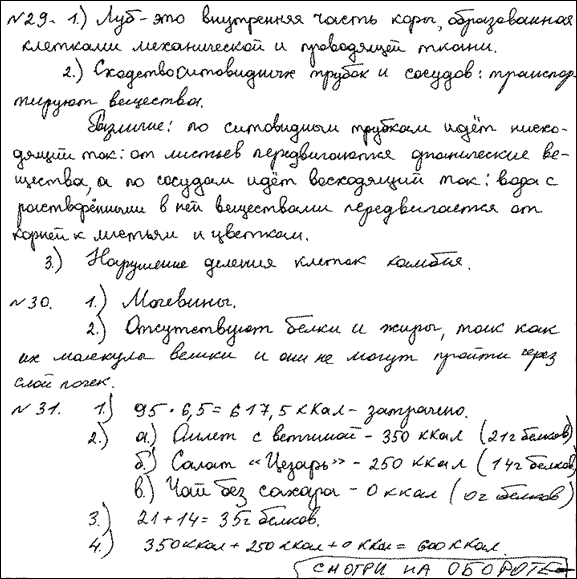 №29. 1.) Луб - это внутренняя часть коры, образованная
клетками механической и проводящей ткани.
2.) Сходство ситовидных трубок и сосудов: транспор
тируют вещества.
Различие: по ситовидным трубкам идёт нисхо-
дящий ток: от листьев передвигаются органические ве-
щества, а по сосудам идёт восходящий ток: вода с
растворёнными в ней веществами передвигается от
корней к листьям и цветкам.
3.) Нарушение деления клеток камбия.
№30. 1.) Мочевины.
2.) Отсутствуют белки и жиры, так как
их молекулы велики и они не могут пройти через
слой почек.
№31. 1.) 95 · 6,5 = 617,5 кКал - затрачено.
2.) а.) Омлет с ветчиной - 350 кКал (21г белков)
б.) Салат «Цезарь» - 250 кКал (14г белков)
в.) Чай без сахара - 0 ккал (0г белков)
3.) 21 + 14 = 35г белков.
4.) 350 кКал + 250 кКал + 0 кКал = 600 кКал.
СМОТРИ НА ОБОРОТЕ